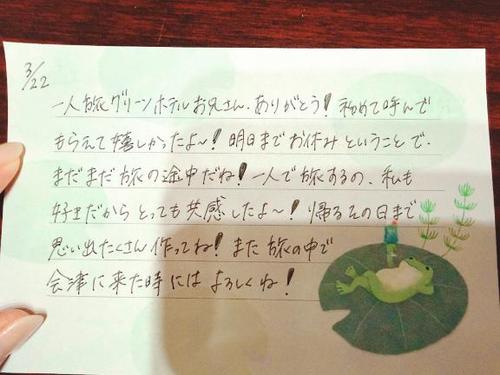 3/22
一人旅グリーンホテルお兄さん、ありがとう! 初めて呼んで
もらえて嬉しかったよ〜! 明日までお休みということで、
まだまだ旅の途中だね! 一人で旅するの、私も
好きだからとっても共感したよ〜! 帰るその日まで
思い出たくさん作ってね! また旅の中で
会津に来た時にはよろしくね!